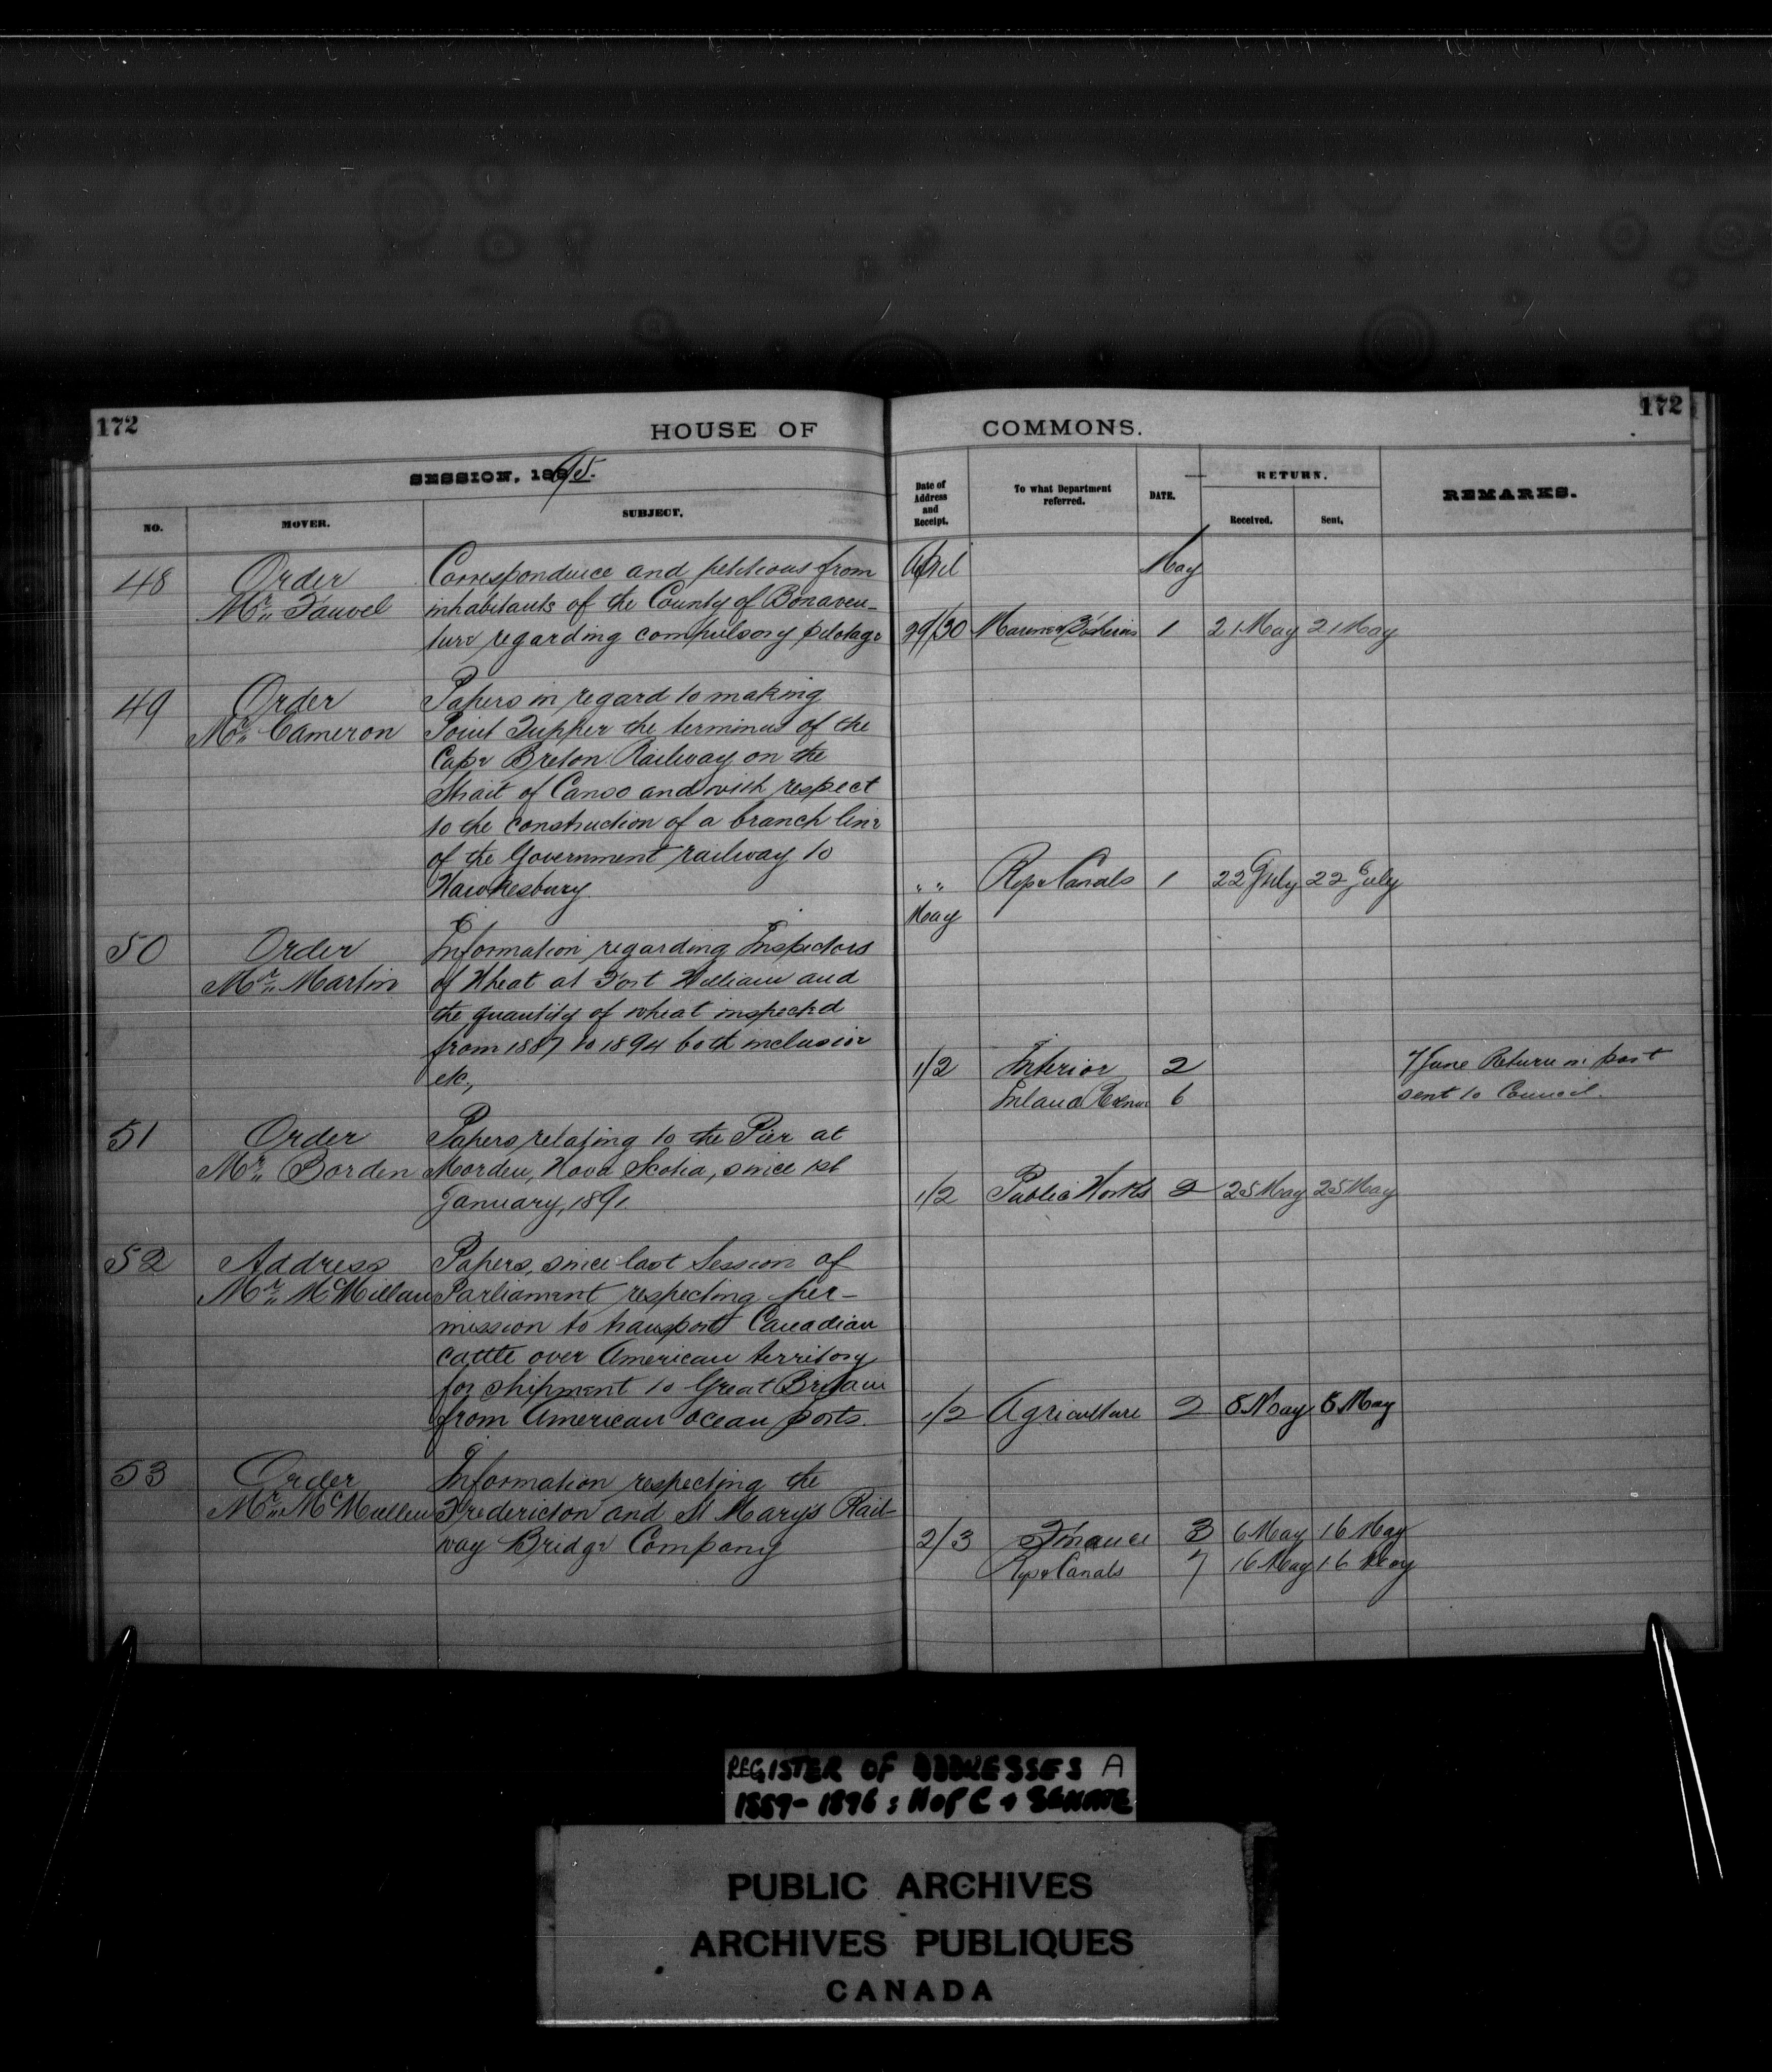 172
HOUSE OF COMMONS.
172
SESSION, 1895.
NO. MOVER. SUBJECT. Date of Address and Receipt. To what Department referred. DATE. RETURN. Received. Sent. REMARKS.
April May
48 Order Correspondence and petitions from
Mr. Fauvel inhabitants of the County of Bonaven-
ture regarding compulsory pilotage 29/30 Marine & Fisheries 1 21 May 21 May
49 Order Papers in regard to making
Mr. Cameron Point Tupper the terminus of the
Cape Breton Railway on the
Strait of Canso and with respect
to the construction of a branch line
of the Government railway to
Hawkesbury. " " Rys & Canals 1 22 July 22 July
May
50 Order Information regarding Inspectors
Mr. Martin of Wheat at Fort William and
the quantity of wheat inspected
from 1887 to 1894 both inclusive
etc, 1/2 Interior 2 7 June Return in part
Inland Revenue 6 sent to Council.
51 Order Papers relating to the Pier at
Mr. Borden Morden, Nova Scotia, since 1st
January, 1891. 1/2 Public Works 2 25 May 25 May
52 Address Papers, since last Session of
Mr. McMillan Parliament respecting per-
mission to transport Canadian
cattle over American territory
for shipment to Great Britain
from American ocean ports. 1/2 Agriculture 2 8 May 8 May
53 Order Information respecting the
Mr. McMullen Fredericton and St Mary's Rail-
way Bridge Company 2/3 Finance 3 6 May 16 May
Rys & Canals 7 16 May 16 May
REGISTER OF ADDRESSES A
1889-1896: H of C + SENATE
PUBLIC ARCHIVES
ARCHIVES PUBLIQUES
CANADA